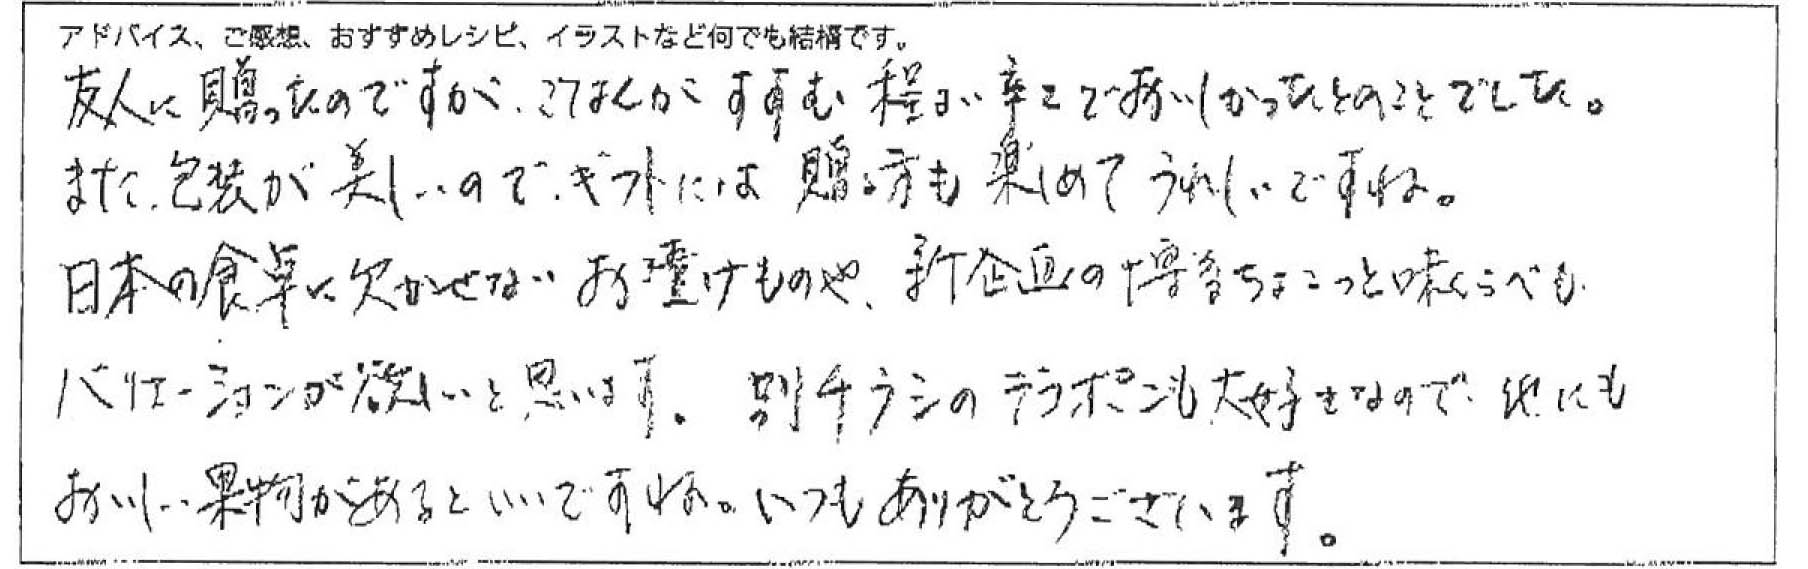 アドバイス、ご感想、おすすめレシピ、イラストなど何でも結構です。
友人に贈ったのですが、ごはんがすすむ程よい辛さでおいしかったとのことでした。
また、包装が美しいので、ギフトには贈る方も楽しめてうれしいですね。
日本の食卓に欠かせないお漬けものや、新企画の博多ちょこっと味くらべも
バリエーションが欲しいと思います。別チラシのデコポンも大好きなので、他にも
おいしい果物があるといいですね。いつもありがとうございます。